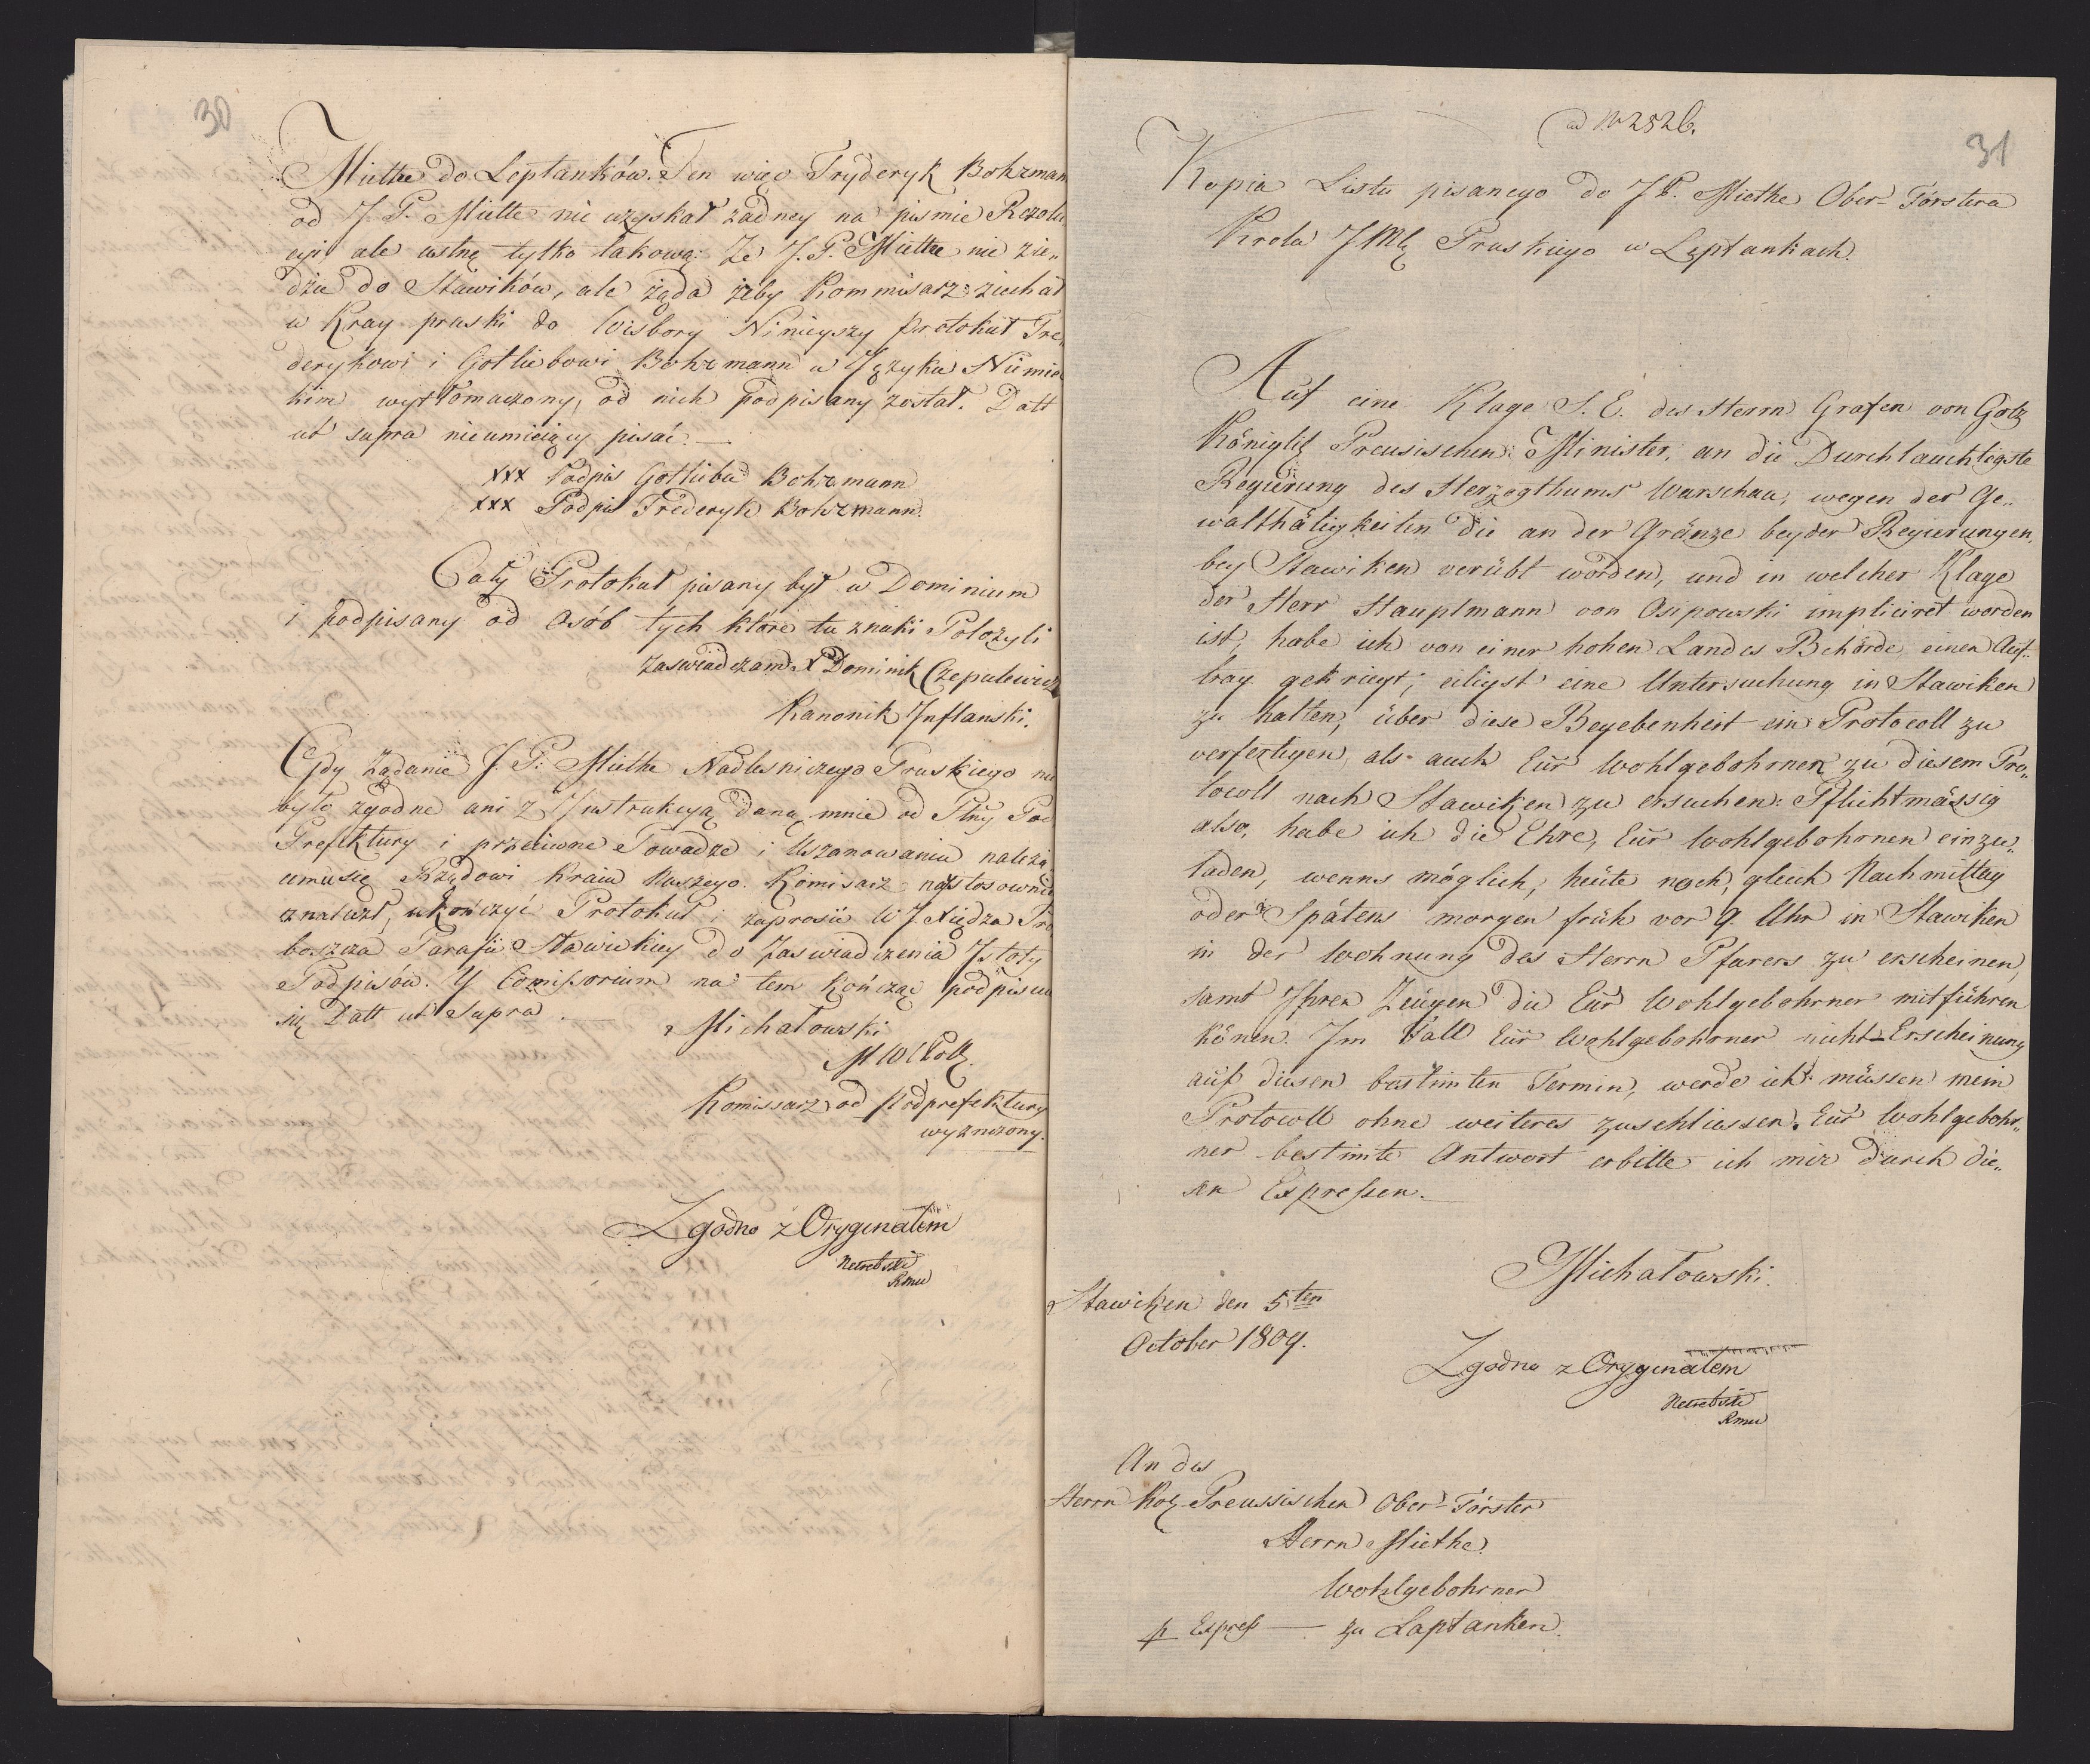 30
Miethe do Leptanków. Ten więc Fryderyk Bohrman
od J. P. Miethe nie uzyskał żadney na pismie Rezolu
cyi ale ustnę tylko takową: Że J. P. Miethe nie zie„
dzie do Stawików, ale żąda żeby Kommisarz ziechał
w Kray pruski do Wisbory Ninieyszy Protokuł Fre„
derykowi i Gotliebowi Bohrmann w Języku Niemie
kim wytłomaczony, od nich podpisany został. Datt
ut supra nieumieiący pisać. —
xxx Podpis Gotlieba Bohrmann
xxx Podpis Frederyk Bohrmann.
Cały Protokuł pisany był w Dominium
i podpisany od Osób tych które tu znaki Położyli
zaswiadczam X Dominik Czepulewicz
Kanonik Inflanski.
Gdy żądanie J. P. Miethe Nadlesniczego Pruskiego nie
było zgodne ani z Instrukcyą daną mnie od Pod
Prefektury i przeciwne Powadze i Uszanowaniu należą
cemu się Rządowi Kraiu Naszego. Komisarz naystosowniey
znalazł, ukończyć Protokuł i zaprosić W J. Xiędza Pro
boszcza Parafii Stawickiey do Zaswiadczenia Istoty
Podpisów. Y Comissorium na tem kończąc podpisuie
się Datt ut Supra. —
Michałowski
Komissarz od Podprefektury
wyznczony.
Zgodno z Oryginałem
ad Nr 2526.
31
Kopia Listu pisanego do J P. Miethe Ober-Förstera
Krola JMć Pruskiego w Leptankach.
Auf eine Klage S. E. des Herrn Grafen von Goltz
Königlg Preusischen Minister, an die Durchlauchtigste
Regierung des Herzogthums Warschau, wegen der Ge„
walthätigkeiten die an der Gränze beyder Regierungen,
bey Stawiken verübt worden, und in welcher Klage
der Herr Hauptmann von Osipowski impliciret worden
ist, habe ich von einer hohen Landes Behörde, einen Auf„
trag gekriegt; eiligst eine Untersuchung in Stawiken
zu halten, über diese Begebenheit ein Protocoll zu
verfertigen, als auch Eür Wohlgebohrnen zu diesem Pro„
tocoll nach Stawiken zu ersuchen: Pflichtmässig
also, habe ich die Ehre, Eür Wohlgebohrnen einzu„
laden, wenns möglich, heüte noch, gleich Nachmittag
oder Spätens morgen früh vor 9. Uhr in Stawiken
in der Wohnung des Herrn Pfarers zu erscheinen,
samt Ihren Zeügen die Eür Wohlgebohrner mitführen
könen. Im Fall Eür Wohlgebohrner nicht-Erscheinung
auf diesen bestimten Termin, werde ich müssen mein
Protocoll ohne weiteres zuschliessen. Eür Wohlgebohr„
ner bestimte Antwort erbitte ich mir durch die„
sen Expressen. —
Michałowski.
Stawiken den 5ten
October 1809.
Zgodno z Oryginałem
An des
Herrn Kög Preussischen Ober-Förster
Herrn Miethe.
Wohlgebohrner
p Expreß — zu Laptanken.